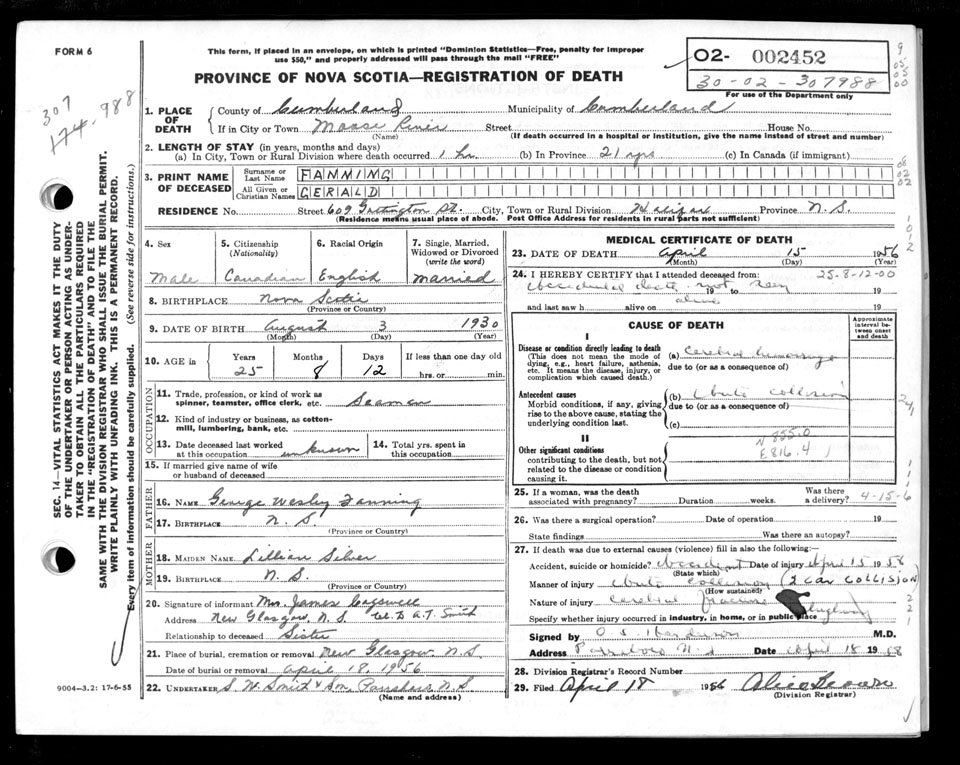 FORM 6
This form, if placed in an envelope, on which is printed "Dominion Statistics—Free, penalty for improper
use $50," and properly addressed will pass through the mail "FREE"
PROVINCE OF NOVA SCOTIA—REGISTRATION OF DEATH
02- 002452
30-02-307988
For use of the Department only
307 988
174
SEC. 14—VITAL STATISTICS ACT MAKES IT THE DUTY
OF THE UNDERTAKER OR PERSON ACTING AS UNDER-
TAKER TO OBTAIN ALL THE PARTICULARS REQUIRED
IN THE "REGISTRATION OF DEATH" AND TO FILE THE
SAME WITH THE DIVISION REGISTRAR WHO SHALL ISSUE THE BURIAL PERMIT.
WRITE PLAINLY WITH UNFADING INK. THIS IS A PERMANENT RECORD.
Every item of information should be carefully supplied. (See reverse side for instructions.)
1. PLACE OF DEATH County of Cumberland Municipality of Cumberland
If in City or Town Moose River Street House No.
(Name) (If death occurred in a hospital or institution, give the name instead of street and number)
2. LENGTH OF STAY (in years, months and days)
(a) In City, Town or Rural Division where death occurred 1 hr. (b) In Province 21 yrs (c) In Canada (if immigrant)
3. PRINT NAME OF DECEASED Surname or Last Name FANNING
All Given or Christian Names GERALD
RESIDENCE No. Street 609 Gottington St. City, Town or Rural Division Halifax Province N.S.
(Residence means usual place of abode. Post Office Address for residents in rural parts not sufficient)
4. Sex 5. Citizenship (Nationality) 6. Racial Origin 7. Single, Married, Widowed or Divorced (write the word)
Male Canadian English married
8. BIRTHPLACE Nova Scotia
(Province or Country)
9. DATE OF BIRTH August 3 1930
(Month) (Day) (Year)
10. AGE in Years Months Days If less than one day old
25 8 12 hrs. or min.
OCCUPATION
11. Trade, profession, or kind of work as
spinner, teamster, office clerk, etc. Seaman
12. Kind of industry or business, as cotton-
mill, lumbering, bank, etc.
13. Date deceased last worked at this occupation unknown 14. Total yrs. spent in this occupation
15. If married give name of wife
or husband of deceased
FATHER
16. NAME George Wesley Fanning
17. BIRTHPLACE N. S.
(Province or Country)
MOTHER
18. MAIDEN NAME Lillian Silver
19. BIRTHPLACE N. S.
(Province or Country)
20. Signature of informant Mrs. James
Address New Glasgow, N. S. A. T. Smith
Relationship to deceased Sister
21. Place of burial, cremation or removal New Glasgow N.S.
Date of burial or removal April 18, 1956
22. UNDERTAKER S. W. Smith & Son, Parrsboro N.S.
(Name and address)
9004-3.2: 17-6-55
MEDICAL CERTIFICATE OF DEATH
23. DATE OF DEATH April 15 1956
(Month) (Day) (Year)
24. I HEREBY CERTIFY that I attended deceased from: 25-8-12-00
Accidental death not seen 19 to 19
alive
and last saw h alive on 19
CAUSE OF DEATH
Approximate interval between onset and death
I
Disease or condition directly leading to death
(This does not mean the mode of
dying, e.g., heart failure, asthenia,
etc. It means the disease, injury, or
complication which caused death.)
(a) Cerebral
due to (or as a consequence of)
Antecedent causes
Morbid conditions, if any, giving
rise to the above cause, stating the
underlying condition last.
(b) Auto collision
due to (or as a consequence of)
(c)
II
Other significant conditions
contributing to the death, but not
related to the disease or condition
causing it.
N 855.0
E816.4
25. If a woman, was the death associated with pregnancy? Duration weeks. Was there a delivery? 4-15-6
26. Was there a surgical operation? Date of operation 19
State findings Was there an autopsy?
27. If death was due to external causes (violence) fill in also the following:—
Accident, suicide or homicide? Accident Date of injury April 15 1956
(State which)
Manner of injury Auto collision (2 CAR COLLISION)
(How sustained)
Nature of injury Cerebral fracture
Specify whether injury occurred in industry, in home, or in public place Highway
Signed by M.D.
Address Parrsboro N.S Date April 18 1958
28. Division Registrar's Record Number
29. Filed April 18 1956 Alice
(Division Registrar)